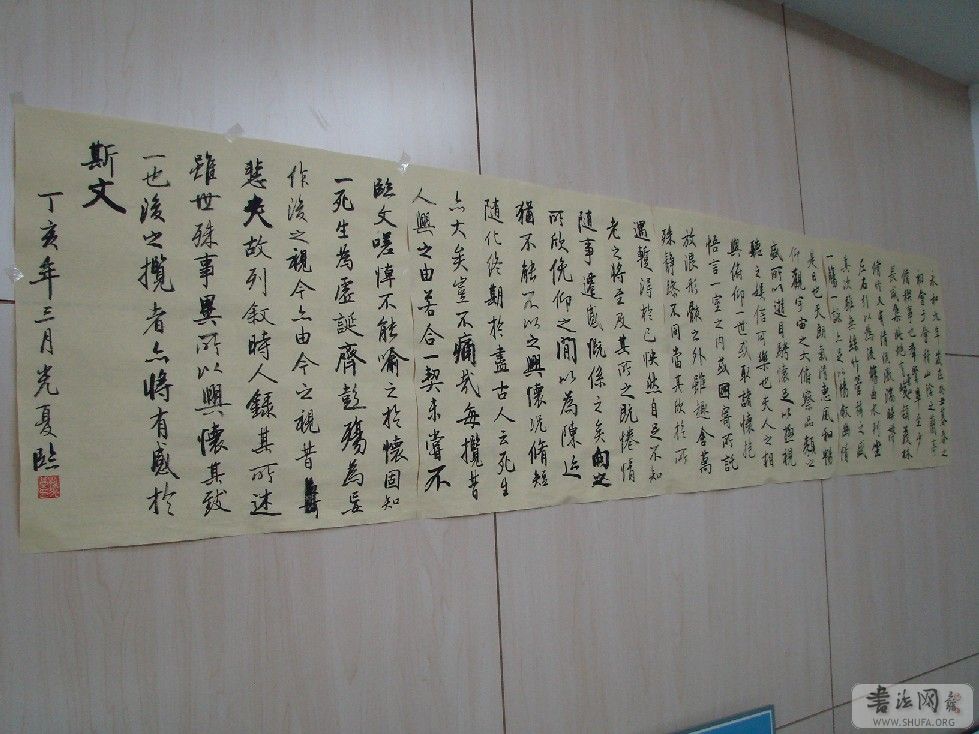 永和九年歲在癸丑暮春之
初會于會稽山陰之蘭亭
脩禊事也羣賢畢至少
長咸集此地有峻領茂林
脩竹又有清流激湍映帶
左右引以為流觴曲水列坐
其次雖無絲竹管弦之盛
一觴一詠亦足以暢敘幽情
是日也天朗氣清惠風和暢
仰觀宇宙之大俯察品類之
盛所以遊目騁懷足以極視
聽之娛信可樂也夫人之相
與俯仰一世或取諸懷抱
悟言一室之內或因寄所託
放浪形骸之外雖趣舍萬
殊靜躁不同當其欣於所
遇暫得於己怏然自足不知
老之將至及其所之既惓情
隨事遷感慨係之矣向之
所欣俛仰之閒以為陳迹
猶不能不以之興懷況脩短
隨化終期於盡古人云死生
亦大矣豈不痛哉每攬昔
人興之由若合一契未嘗不
臨文嗟悼不能喻之於懷固知
一死生為虛誕齊彭殤為妄
作後之視今亦由今之視昔
悲夫故列敘時人錄其所述
雖世殊事異所以興懷其致
一也後之攬者亦將有感於
斯文
丁亥年三月光夏臨
書法网
WWW.SHUFA.ORG